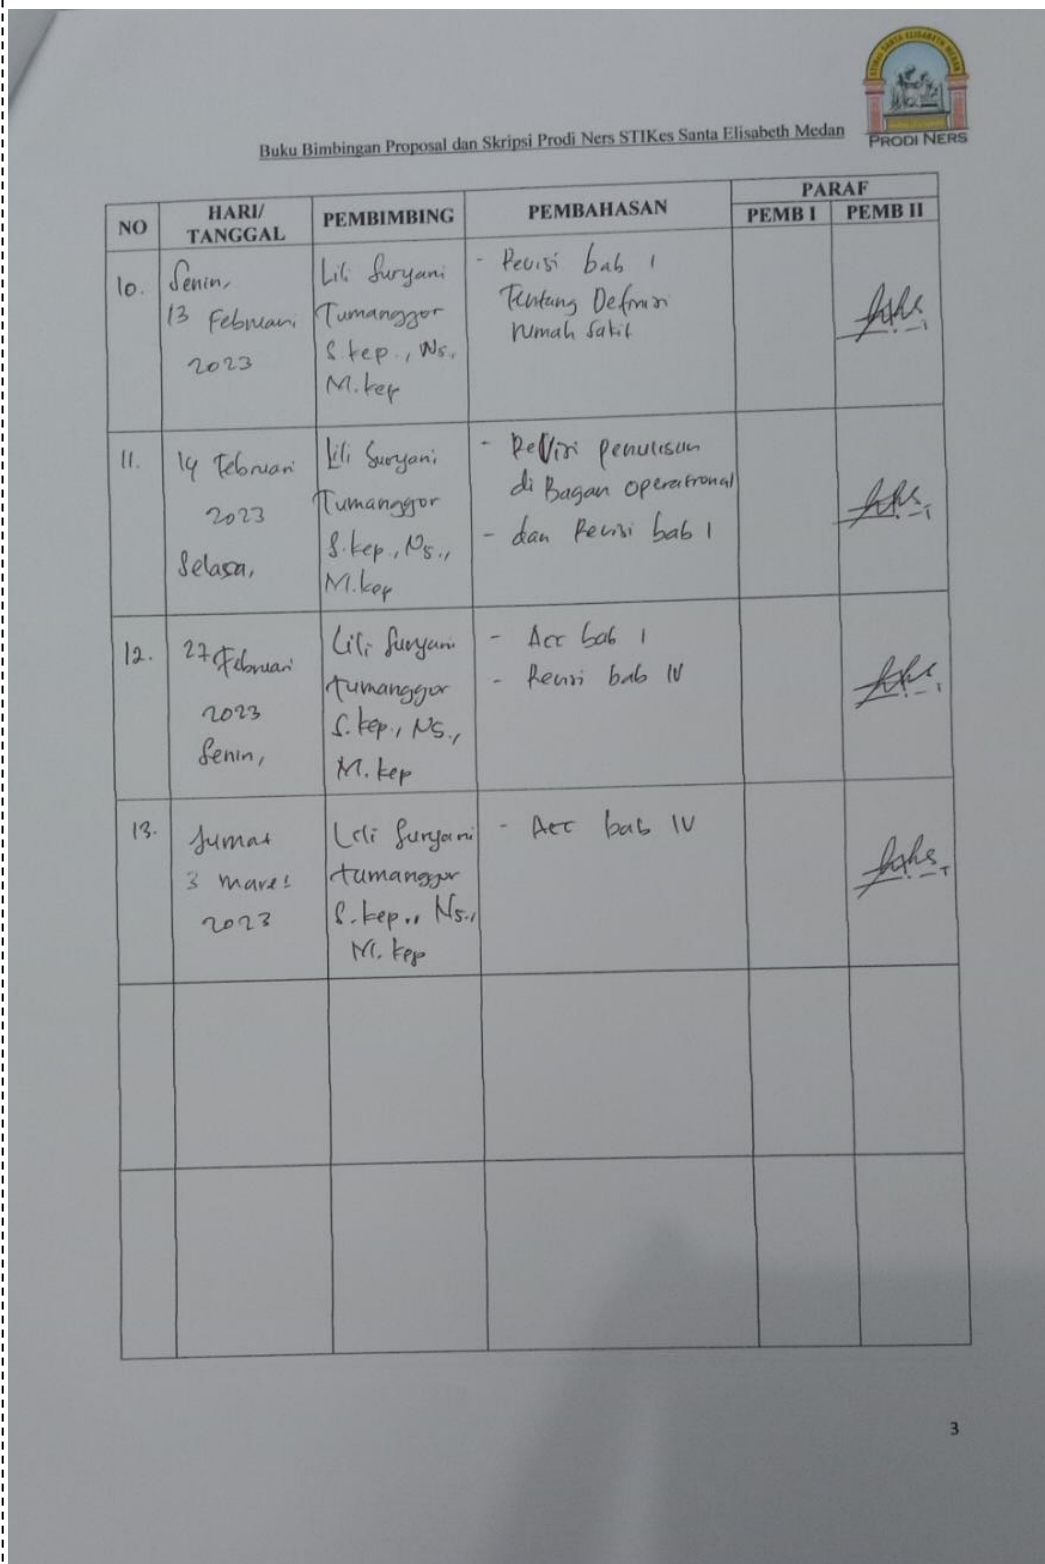 STIKES SANTA ELISABETH MEDAN
PRODI NERS
Buku Bimbingan Proposal dan Skripsi Prodi Ners STIKes Santa Elisabeth Medan
NO
HARI/
TANGGAL
PEMBIMBING
PEMBAHASAN
PARAF
PEMB I
PEMB II
10.
Senin,
13 Februari
2023
Lili Suryani
Tumanggor
S.kep., Ns.,
M.kep
- Revisi bab 1
Tentang Definisi
rumah sakit
11.
14 Februari
2023
Selasa,
Lili Suryani
Tumanggor
S.kep., Ns.,
M.kep
- Revisi penulisan
di Bagan operasional
- dan Revisi bab 1
12.
27 Februari
2023
Senin,
Lili Suryani
tumanggor
S.kep., Ns.,
M.kep
- Acc bab 1
- Revisi bab IV
13.
Jumat
3 Maret
2023
Lili Suryani
tumanggor
S.kep., Ns.,
M.kep
- Acc bab IV
3